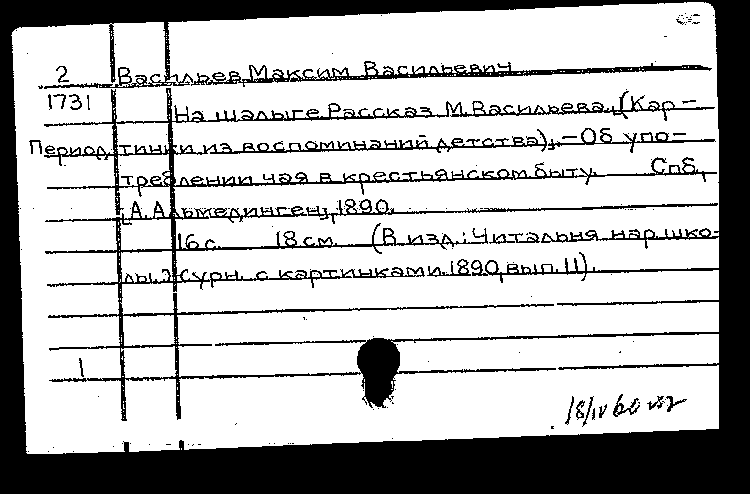 СС
2 Васильев, Максим Васильевич
1731 На шалыге. Рассказ М. Васильева. [(Кар-
Период. тинки из воспоминаний детства)]. - Об упо-
треблении чая в крестьянском быту. Спб,
[А. Альмединген], 1890.
16 с. 18 см. (В изд.: Читальня нар. шко-
лы. Журн. с картинками. 1890, вып. 11).
1
18/IV 60